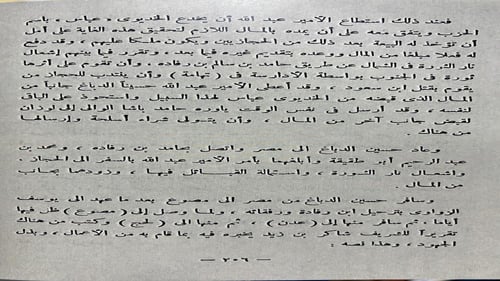 فعند ذلك استطاع الأمير عبد الله أن يخدع الخديوى ، عباس ، باسم
الحزب ويتفق معه على أن يمده بالمال اللازم لتحقيق هذه الغاية على أمل
أن تؤخذ له البيعة بعد ذلك من الحجازيين ويكون ملكا عليهم ، وقد دفع
له فعلا مبلغا من المال ، ووعده بتقديم غيره فيما بعد ، وتقرر فيما بينهم إشعال
نار الثورة فى الشمال عن طريق حامد بن سالم بن رفاده ، وأن تقوم على أثرها
ثورة فى الجنوب بواسطة الأدارسة فى ( تهامة ) وأن ينتدب للحجاز من
يقوم بقتل ابن سعود ، وقد أعطى الأمير عبد الله حسيناً الدباغ جانباً من
المال الذى قبضه من الخديوى عباس لهذا السبيل واستحوذ على الباقى
لنفسه ، وقد أرسل فى نفس الوقت ياوره حامد باشا الوادى إلى لوذان
لقبض جانب آخر من المال ، وأن يتولى شراء أسلحة وإرسالها
من هناك .
وعاد حسين الدباغ إلى مصر واتصل بحامد بن رفاده ، ومحمد بن
عبد الرحيم أبو طقيقة وأبلغهما بأمر الأمير عبد الله بالسفر الى الحجاز
واشعال نار الثورة ، واستمالة القبائل فيها ، وزودهما بجانب
من المال .
وسافر حسين الدباغ من مصر الى مصوع بعد ما عهد الى يوسف
الزواوى بترحيل ابن رفادة ورفقائه ، ولما وصل إلى ( مصوع ) ظل فيها
أياما ، ثم سافر منها إلى ( عدن ) ، ثم منها الى ( لحج ) وكتب من هناك
تقريراً للشريف شاكر بن زيد يخبره فيه بما قام به من الأعمال ، وبذل
الجهود ، وهذا نصه :
— ٢٠٦ —